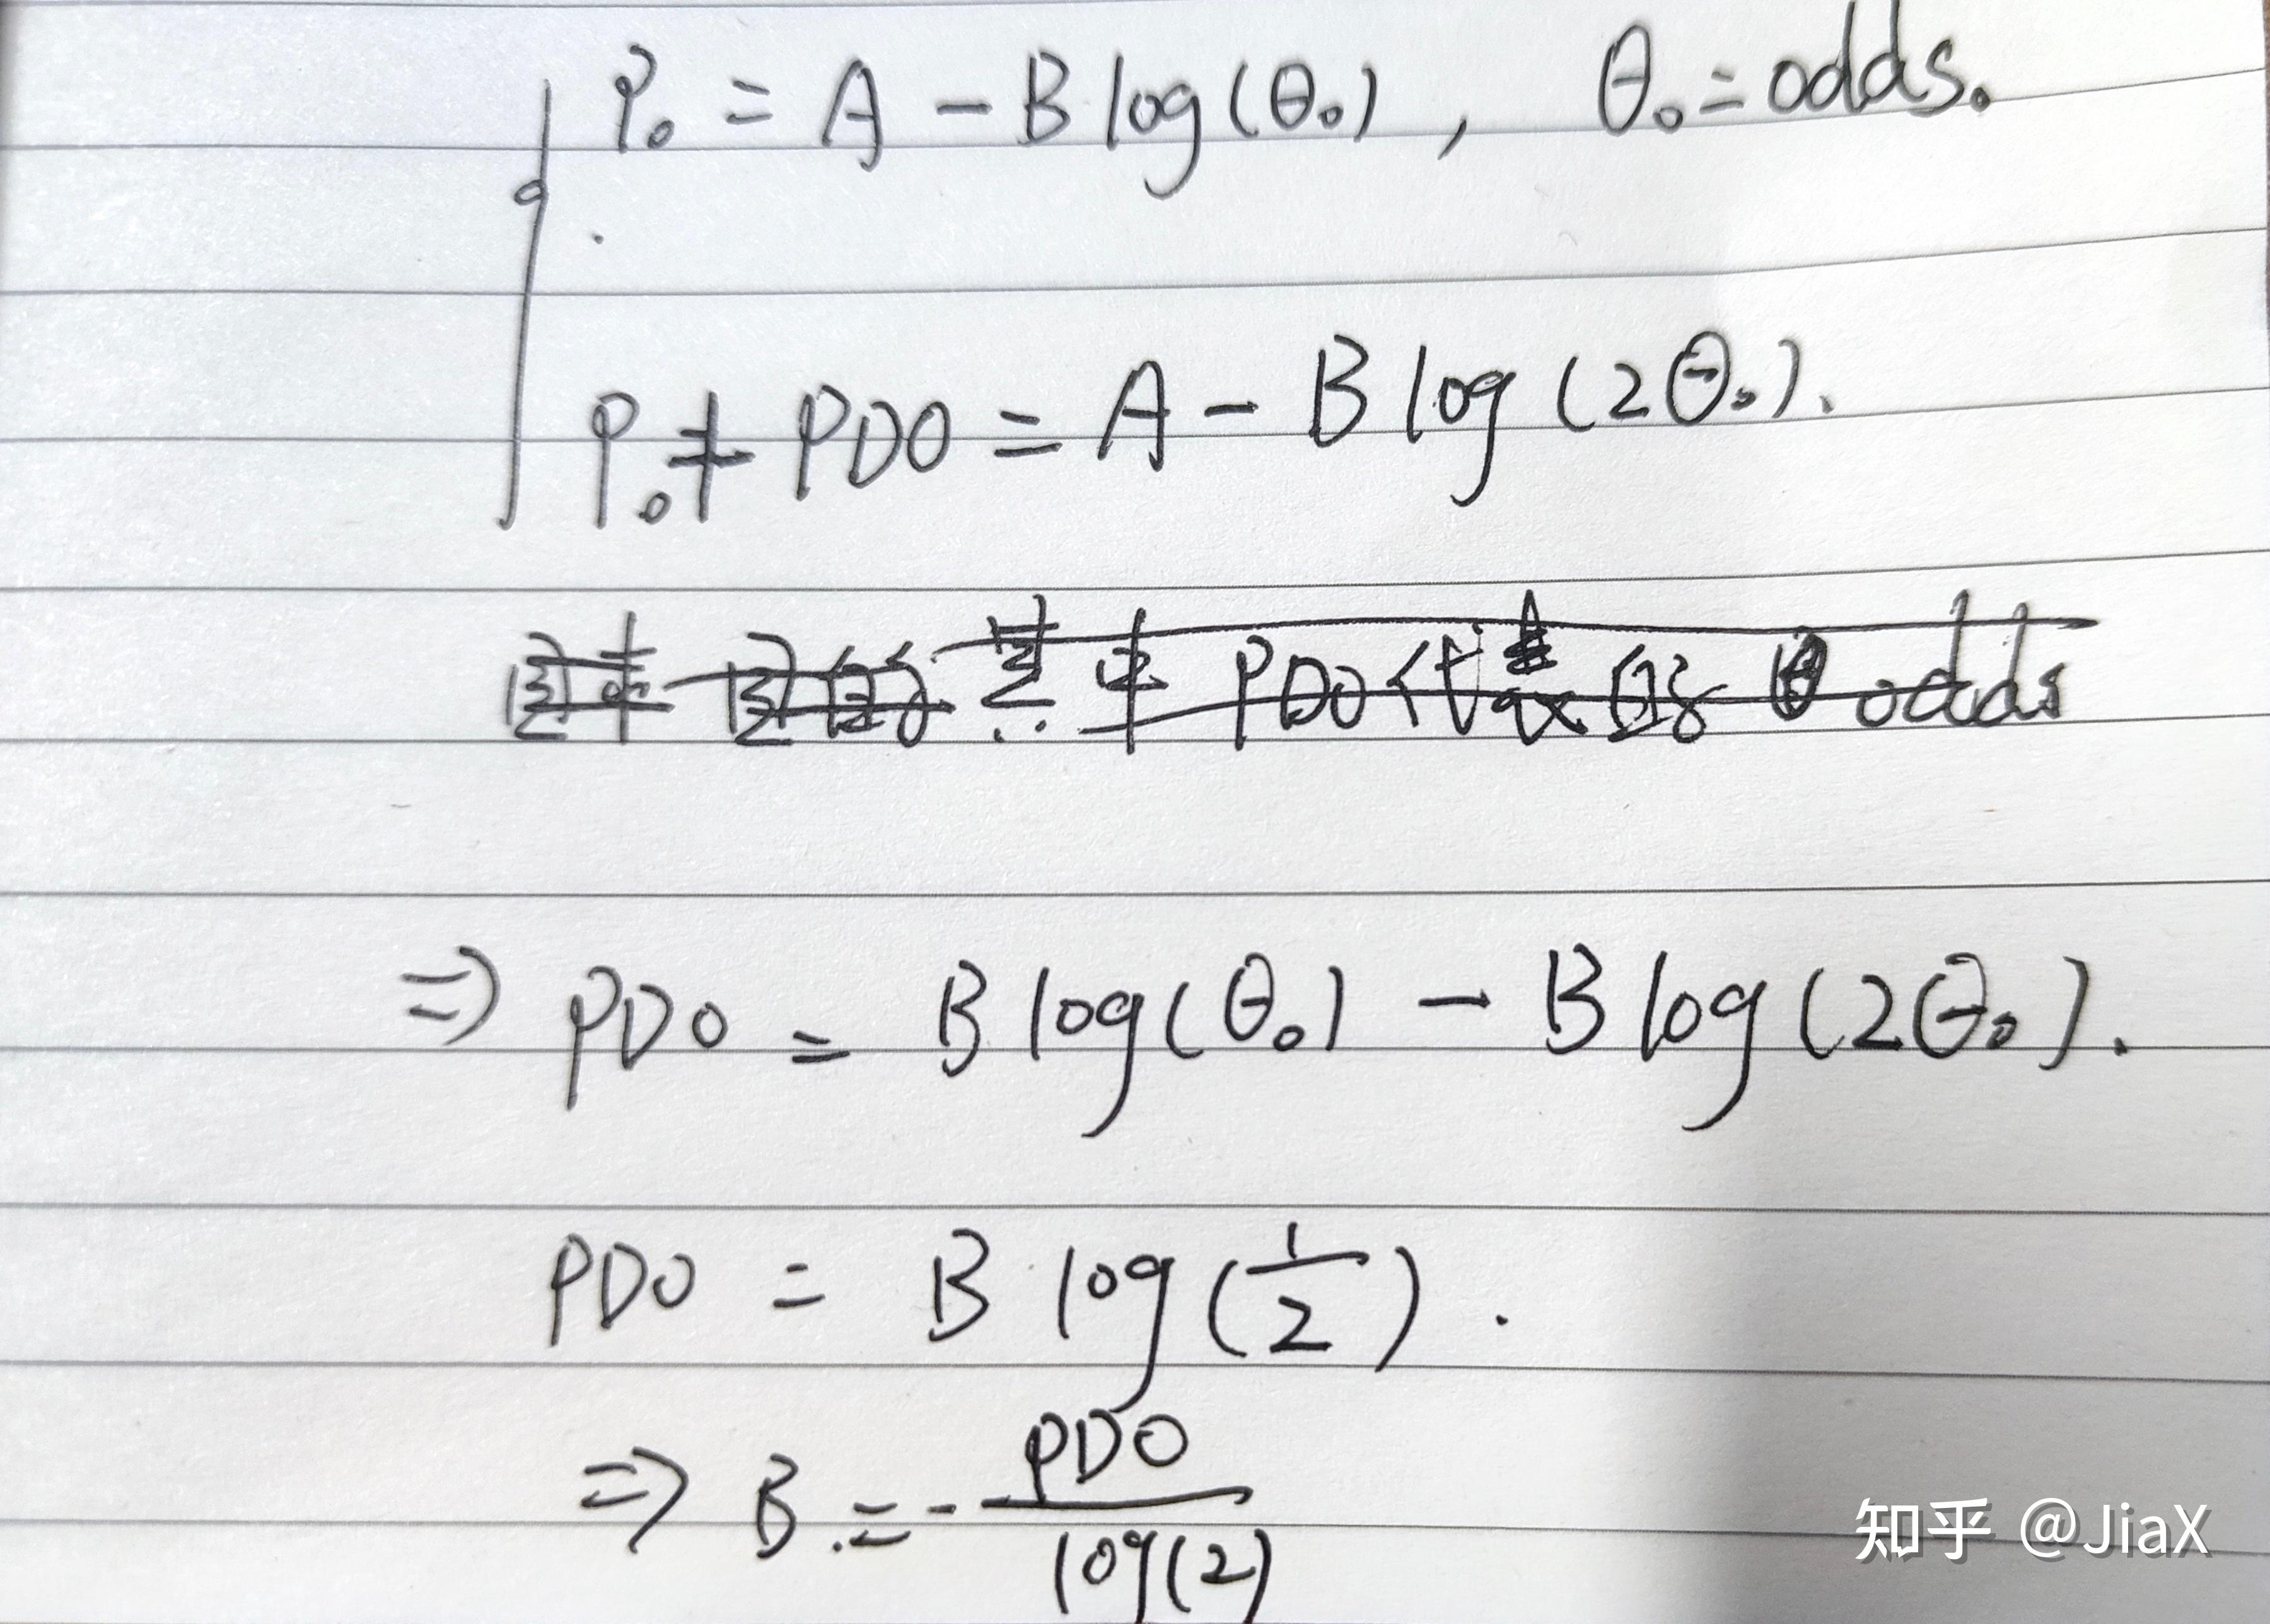 P₀ = A - B log(θ₀), θ₀ = odds.
P₀ + PDO = A - B log(2θ₀).
其中 PDO代表的是 odds
⇒ PDO = B log(θ₀) - B log(2θ₀).
PDO = B log(1/2).
⇒ B = - PDO/log(2)
知乎 @JiaX